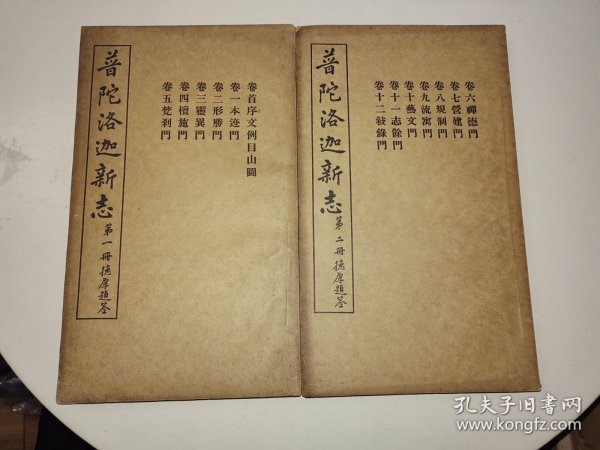 普陀洛迦新志
第一冊 德厚題簽
卷首序文例目山圖
卷一本迹門
卷二形勝門
卷三靈異門
卷四檀施門
卷五梵刹門
普陀洛迦新志
第二冊 德厚題簽
卷六禪德門
卷七營建門
卷八規制門
卷九流寓門
卷十藝文門
卷十一志餘門
卷十二敍錄門
孔夫子旧书网
www.kongfz.com